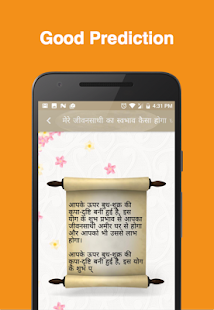 Good Prediction
4:31 PM
मेरे जीवनसाथी का स्वभाव कैसा होगा
आपके ऊपर बुध-शुक्र की
कृपा-दृष्टि बनी हुई है, इस
योग के शुभ प्रभाव से आपका
जीवनसाथी अमीर घर से होगा
और आपको भी उससे लाभ
होगा।
आपके ऊपर बुध-शुक्र की
कृपा-दृष्टि बनी हुई है, इस योग
के शुभ प्